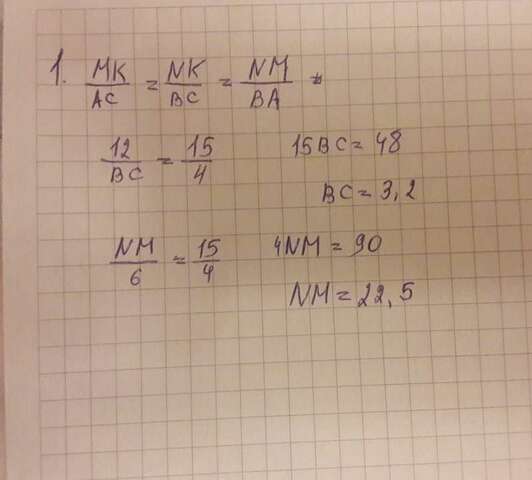 1. MK/AC = NK/BC = NM/BA =
12/BC = 15/4 15BC = 48
BC = 3,2
NM/6 = 15/4 4NM = 90
NM = 22,5